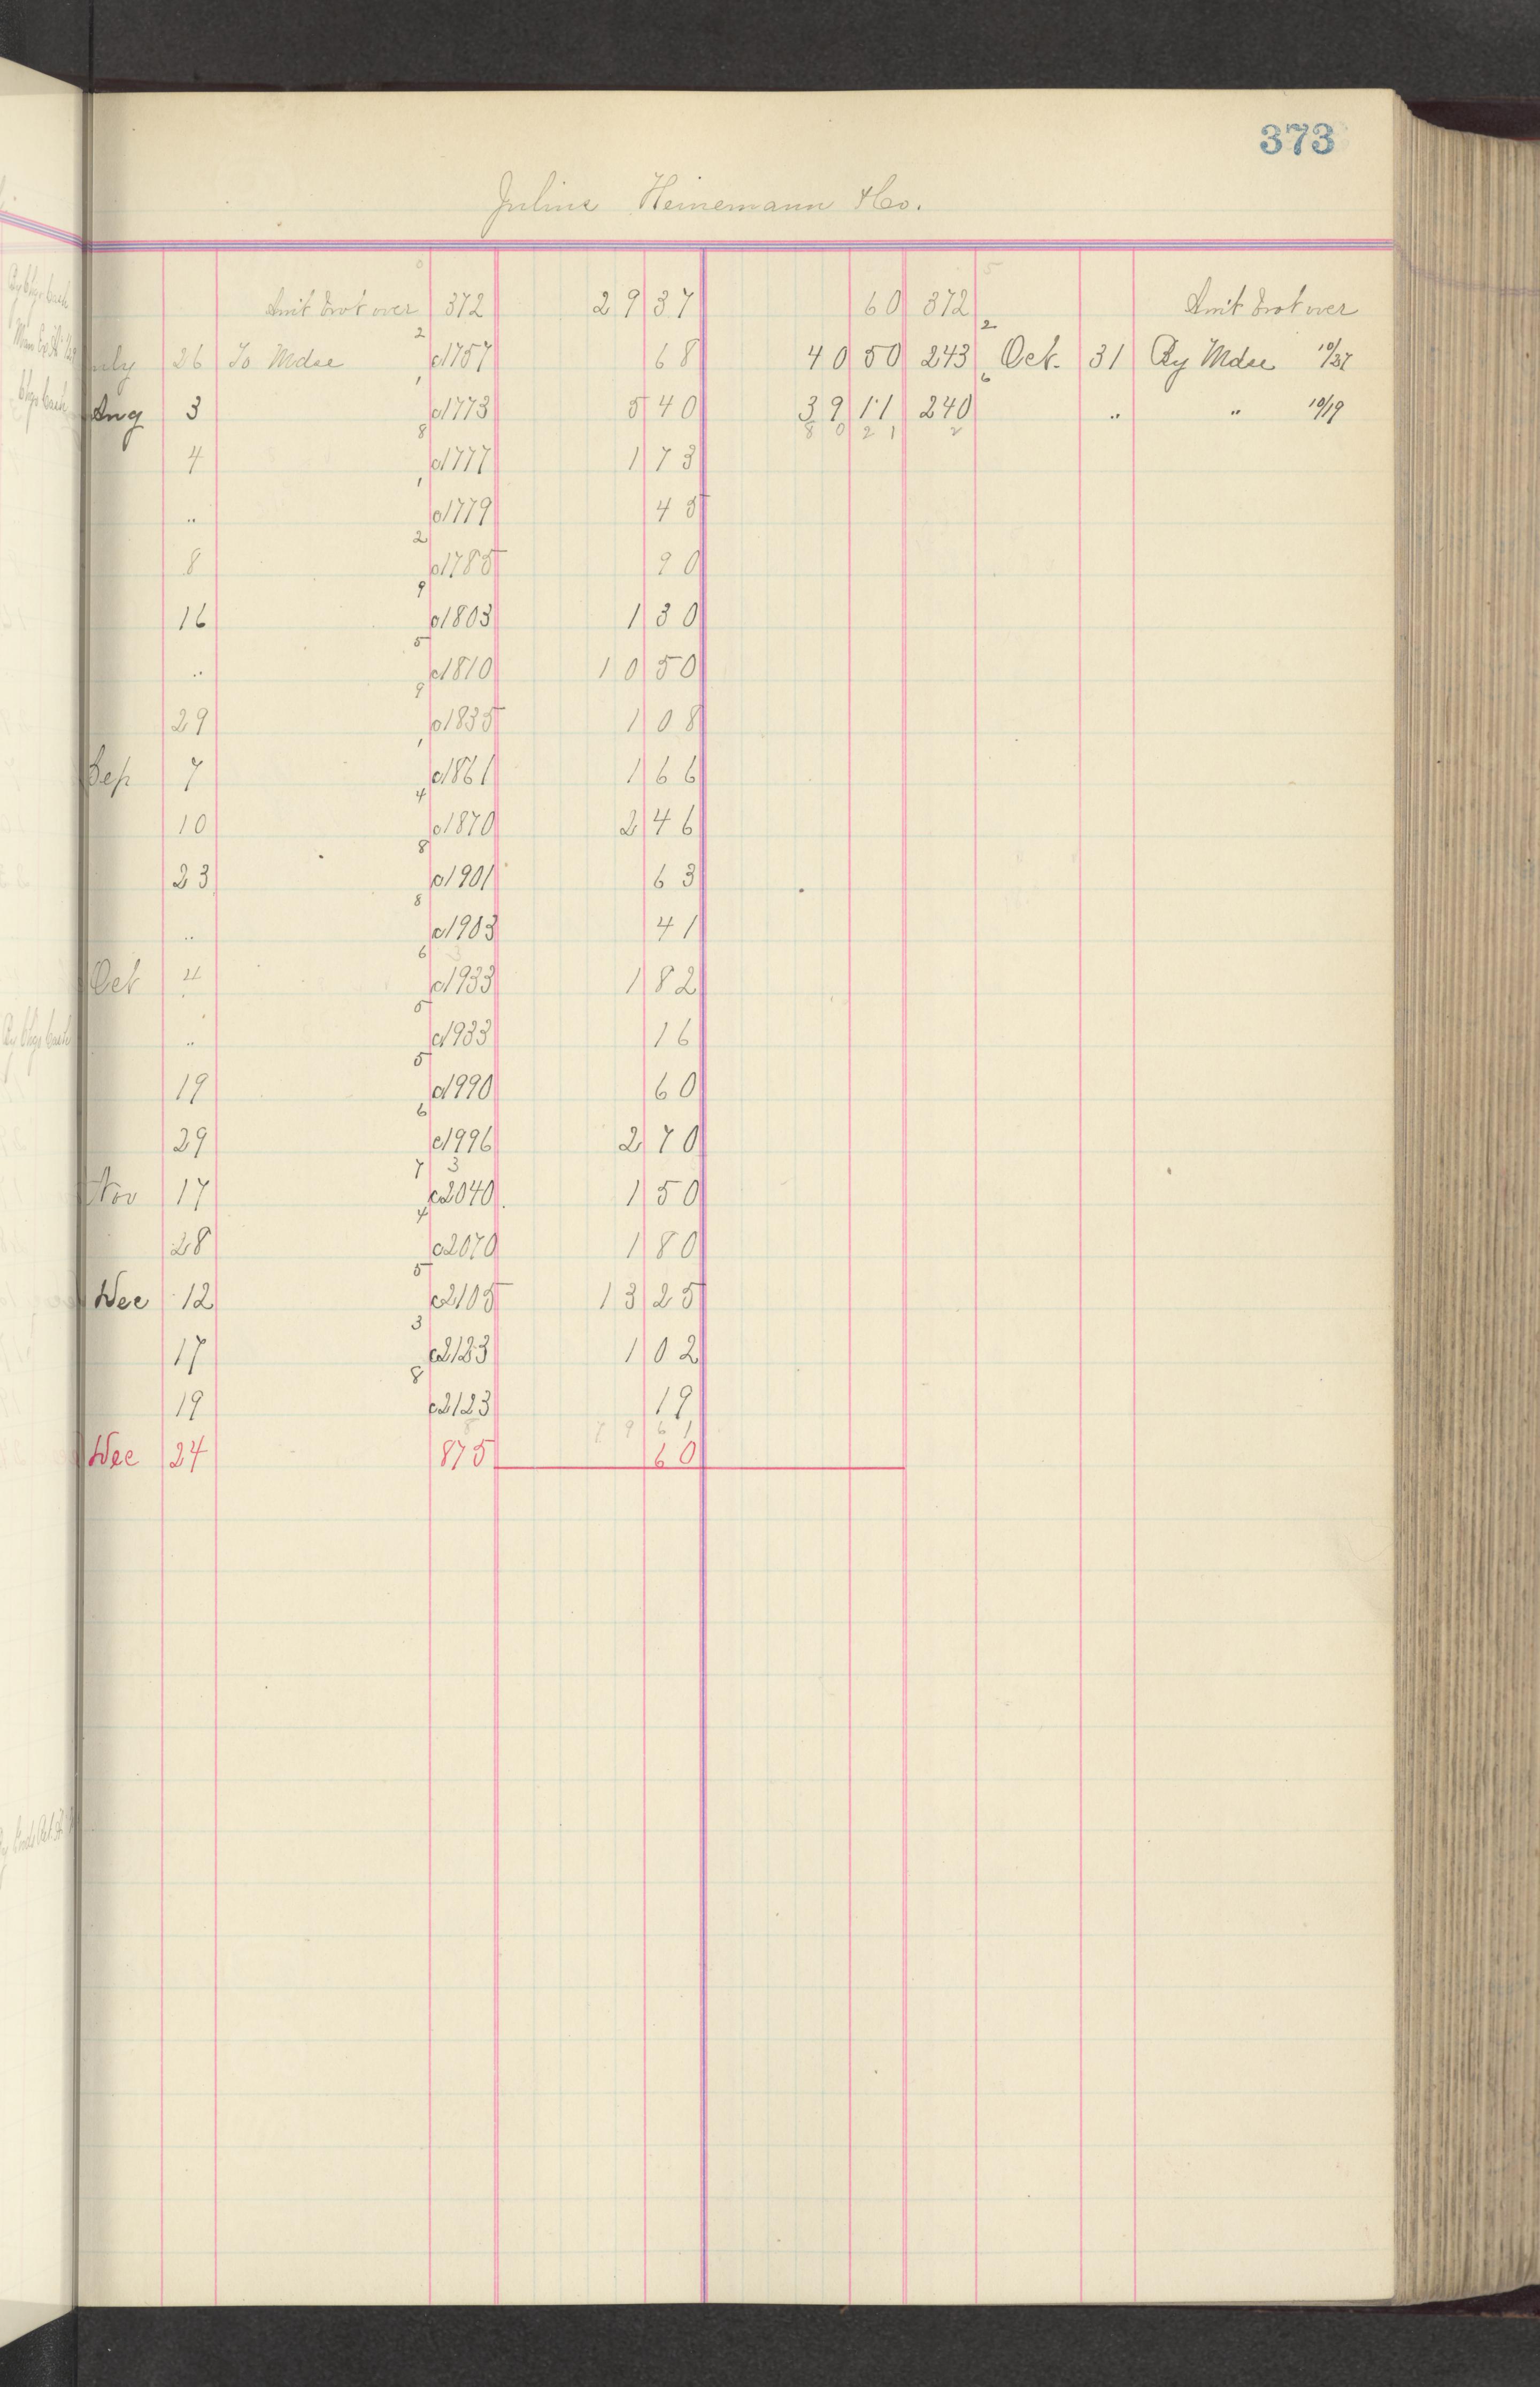 373
Julius Heinemann & Co.
Amt brot over 372 29 37 60 372 Amt brot over
July 26 To Mdse c1757 68 40 50 243 Oct. 31 By Mdse 10/27
Aug 3 c1773 5 40 39 11 240 " " 10/19
80 21
4 c1777 1 73
" c1779 45
8 c1785 90
16 c1803 1 30
" c1810 10 50
29 c1835 1 08
Sep 7 c1861 1 66
10 c1870 2 46
23 c1901 63
" c1903 41
Oct 4 c1933 1 82
" c1933 16
19 c1990 60
29 c1996 2 70
Nov 17 c2040 1 50
28 c2070 1 80
Dec 12 c2105 13 25
17 c2123 1 02
19 c2123 19
79 61
Dec 24 875 60